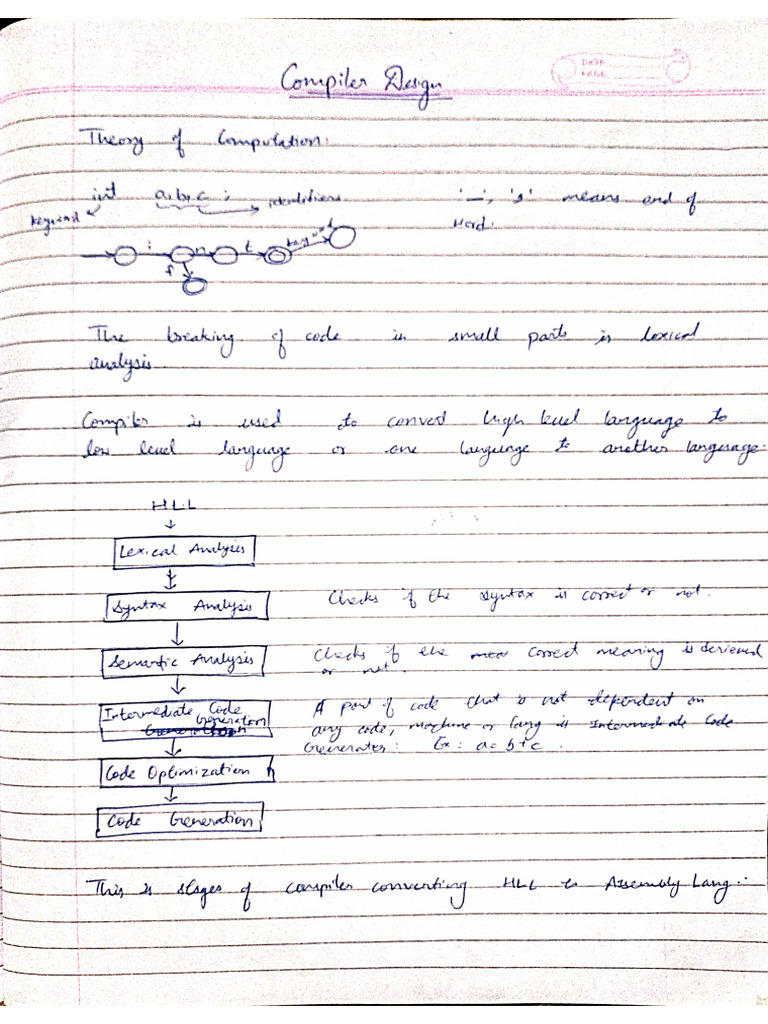 Compiler Design
DATE
PAGE
Theory of Computation.
int a, b, c ; → identifiers
keyword
'_', 'g' means end of
word.
i n t keyword
f
The breaking of code in small parts is lexical
analysis.
Compiler is used to convert high level language to
low level language or one language to another language.
HLL
Lexical Analysis
Syntax Analysis Checks if the syntax is correct or not.
Semantic Analysis Checks if the correct meaning is derieved
or not.
Intermediate Code A part of code that is not dependent on
Generation any code, machine or lang is Intermediate Code
Generater: Ex: a = b + c.
Code Optimization
Code Generation
This is stages of compiler converting HLL to Assembly Lang.